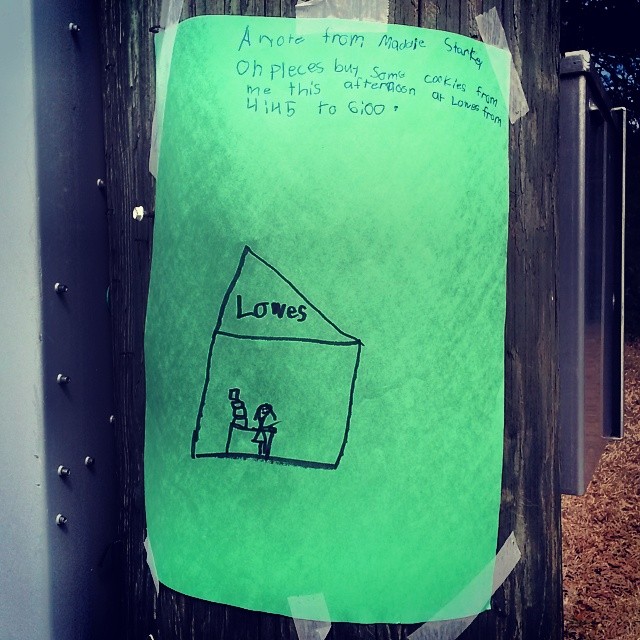 A note from Maddie Stankey
Oh pleces buy some cookies from
me this afternoon at Lowes from
4:45 to 6:00.
Lowes